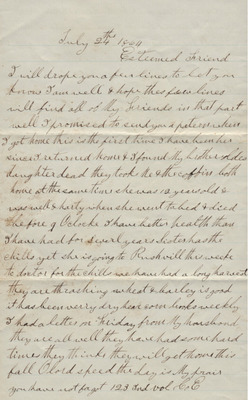 July 24th 1864
Esteemed Friend
I will drope you a few lines to let you
know I am well & hope these few lines
will find all of my Friends in that part
well I promised to send you a when
I got home this is the first time I have been here
since I returned home & I found my
daughter dead they took me & the coffin both
home at the same time she was 12 years old &
was well & harty when she went to bed & died
before 9 Oclock I have better health than
I have had for sevrl years has the
chills yet she is going to Rushvill this week
to doctor for the chills we have had a long harvest
they are thrashing wheat & barley is good
I has been verry dry hear corn looks
I had a letter on Friday from My husband
they are all well they have had some hard
times they thinks they will get home this
fall O lord speed the day is My prair
you have not forgot 123 Ind vol